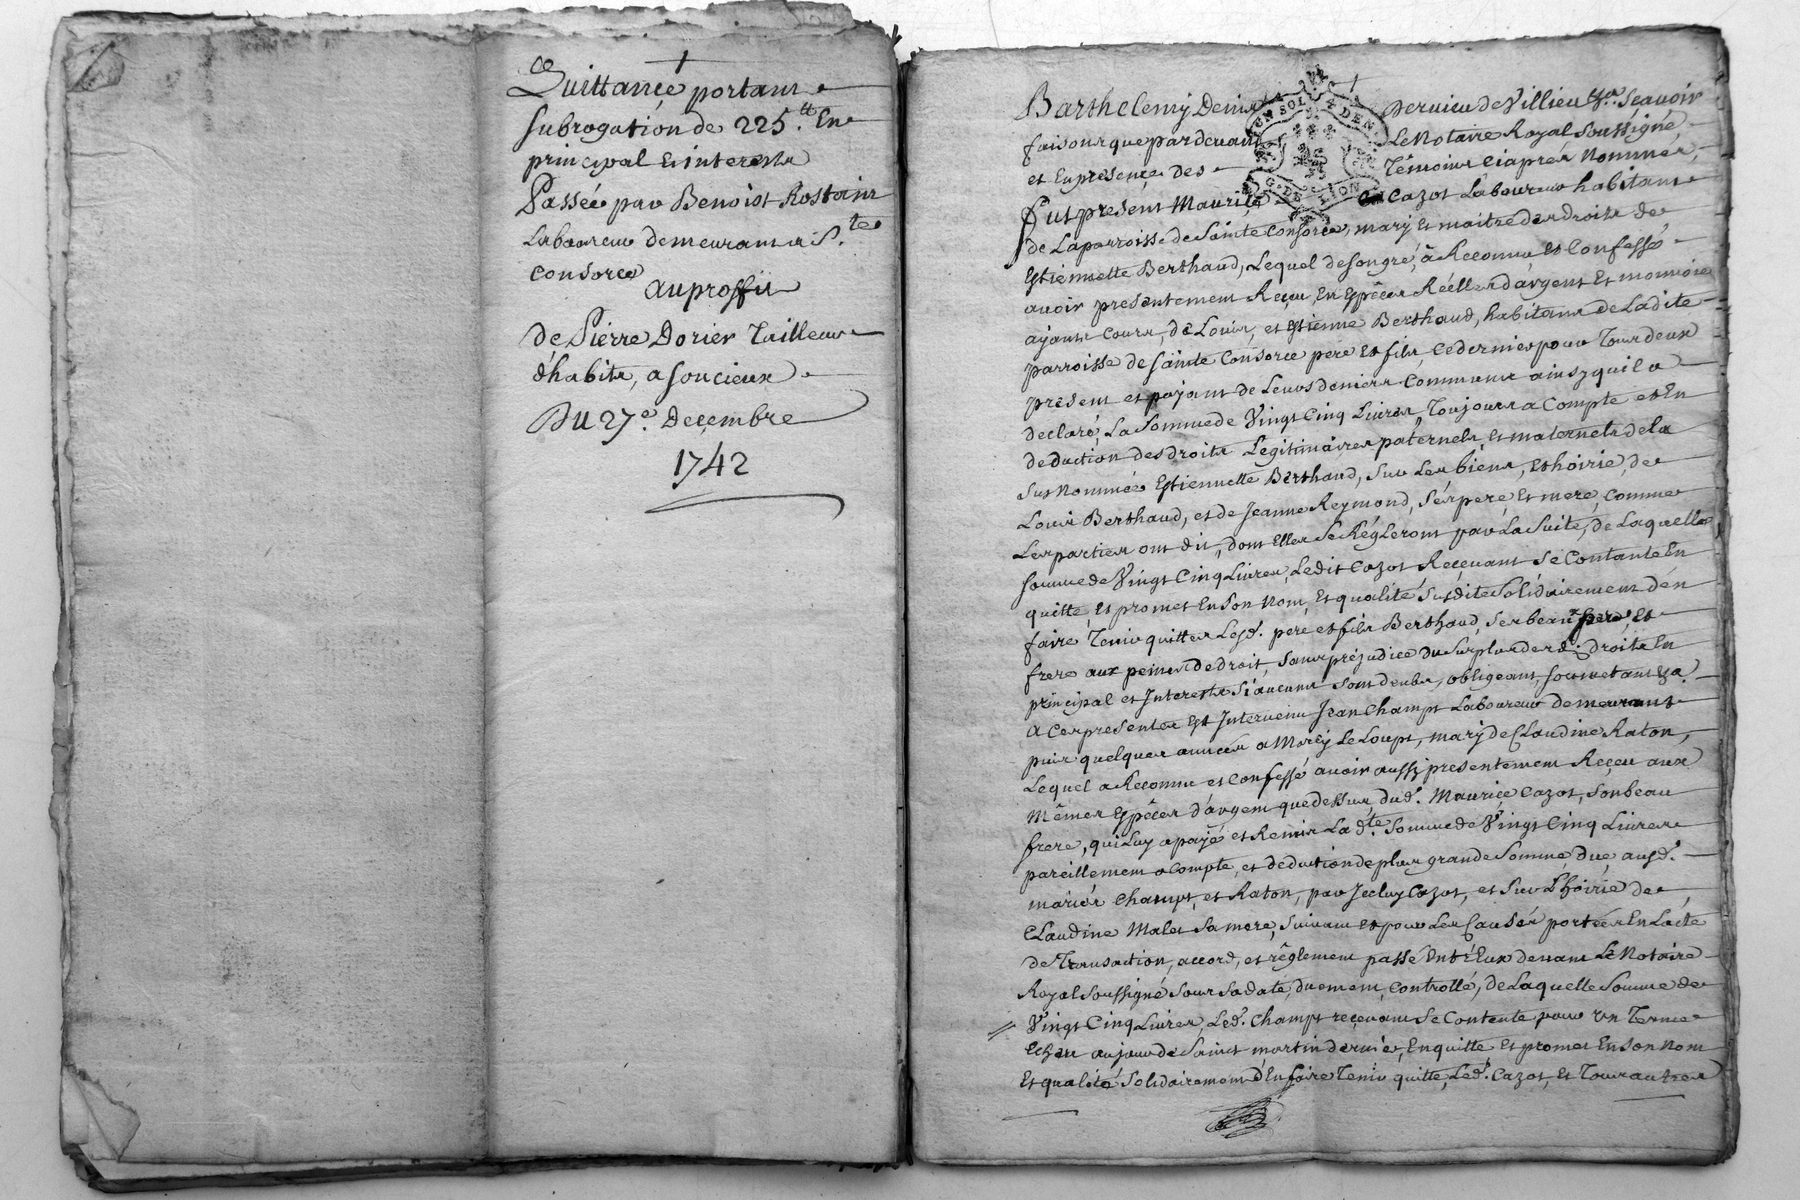 Quittance portant
subrogation de 225.tt En
principal et interests
Passée par Benoist Rostain
Laboureur demeurant a S.te
Consorce
au proffit
de Pierre Dorier Tailleur
d'habits, a Soucieux
Du 27.e Decembre
1742
Barthelemy Denis Dervieu de Villieu &a. Scavoir
faisons que pardevant Le Notaire Royal Soussigné,
et En presence des Témoins Ciaprés Nommés,
Fut present Maurice Cazot Laboureur habitant
de La parroisse de Sainte Consorce, mary et maitre des droits de
Estiennette Berthaud, Lequel de son gré, a Reconnu et Confessé
avoir presentement Reçeu En Espêces Réelles d'argent et monnoie
ayant Cours, de Louis, et Estienne Berthaud, habitans de Ladite
parroisse de Sainte Consorce pere et fils, Ce dernier pour Tous deux
present et payant de Leurs deniers Communs ainsy quil a
declaré, La Somme de Vingt Cinq Livres Toujours a Compte et En
deduction des droits Legitimaires paternels, et maternels de la
Sus Nommée Estiennette Berthaud, Sur Les biens, et hoirie, de
Louis Berthaud, et de Jeanne Reymond, Ses pere et mere, Comme
Les parties ont dit, dont Elles Se Régleront par La Suite, de Laquelle
Somme de Vingt Cinq Livres, Ledit Cazot Reçevant Se Contante En
quitte, et promet En Son Nom, Et qualité Susdite Solidairement d'en
faire Tenir quittes Lesd. pere et fils Berthaud, Ses beau pere, et
frere aux peines de droit, Sans préjudice du Surplus desd. droits En
principal et Interests Si aucuns Sont deubs, obligeant, Soumetant &a.
A Ces presentes Est Intervenu Jean Champt Laboureur demeurant
puis quelques années a Marcy Le Loupt, mary de Claudine Raton,
Lequel a Reconnu et Confessé avoir aussy presentement Reçeu aux
Mêmes Espêces d'argent que dessus, dud. Maurice Cazot, Son beau
frere, qui Luy a payé et Remis La d.te Somme de Vingt Cinq Livres
pareillement a Compte, et deduction de plus grande Somme, due ausd.
mariés Champt, et Raton, par Jceluy Cazot, et Sur L'hoirie de
Claudine Malet Sa mere, Suivant et pour Les Causes portées En L'acte
de Transaction, accord, et règlement passé Entr'Eux devant Le Notaire
Royal Soussigné Sous Sa date, duement Controllé, de Laquelle Somme de
Vingt Cinq Livres, Led. Champt reçevant Se Contente pour un Terme
Echeu au jour de Saint martin dernier, En quitte, Et promet En Son Nom
Et qualité Solidairement d'En faire Tenir quitte, Led. Cazot, Et Tous autres